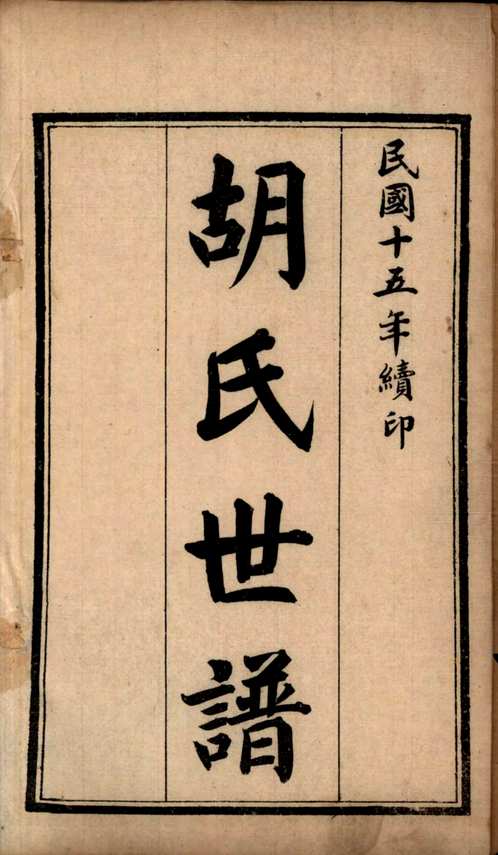 民國十五年續印
胡氏世譜